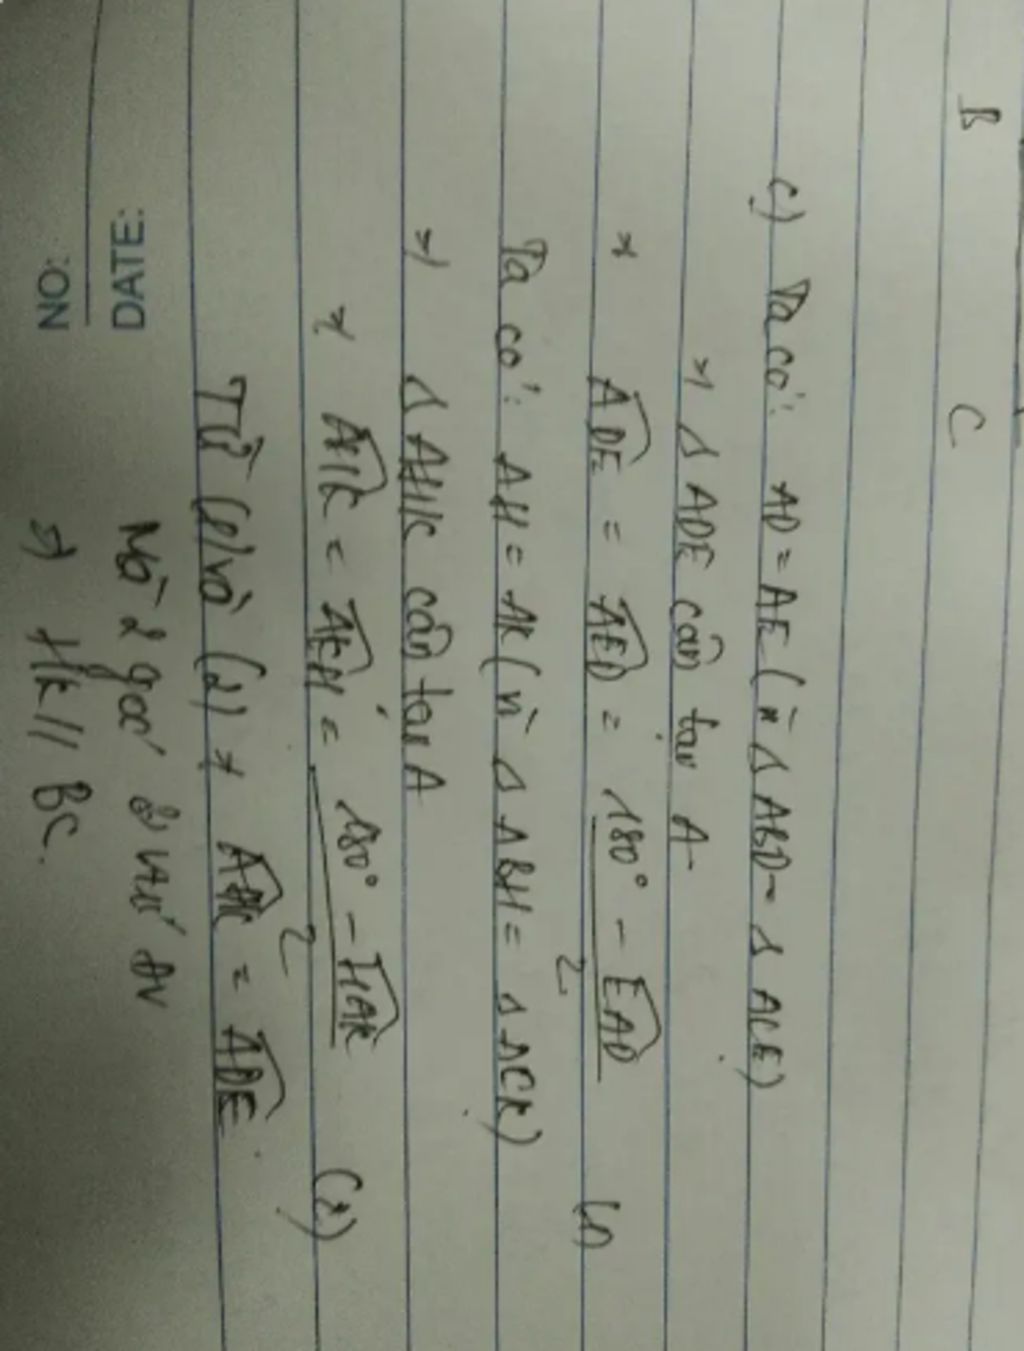 B C
c) Ta có: AD = AE (vì Δ ABD = Δ ACE)
=> Δ ADE cân tại A
=> ADE = AED = 180° - EAD / 2 (1)
Ta có: AH = AK (vì Δ ABH = Δ ACK)
=> Δ AHK cân tại A
=> AHK = AKH = 180° - HAK / 2 (2)
Từ (1) và (2) => AHK = ADE
Mà 2 góc ở vị trí
=> HK // BC.
DATE:
NO: